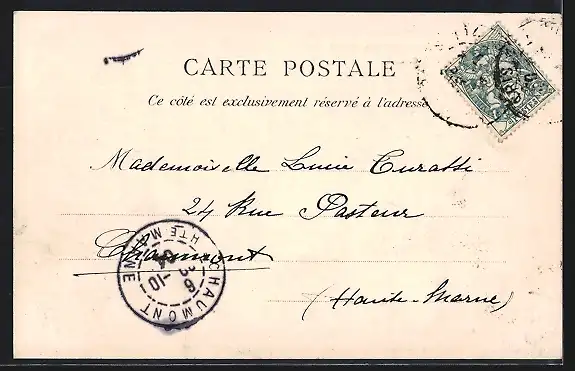 CARTE POSTALE
Ce côté est exclusivement réservé à l'adresse
Mademoiselle Lucie Curassi
24 Rue Pasteur
Chaumont
(Haute-Marne)
CHAUMONT HTE MARNE
6
-10
04